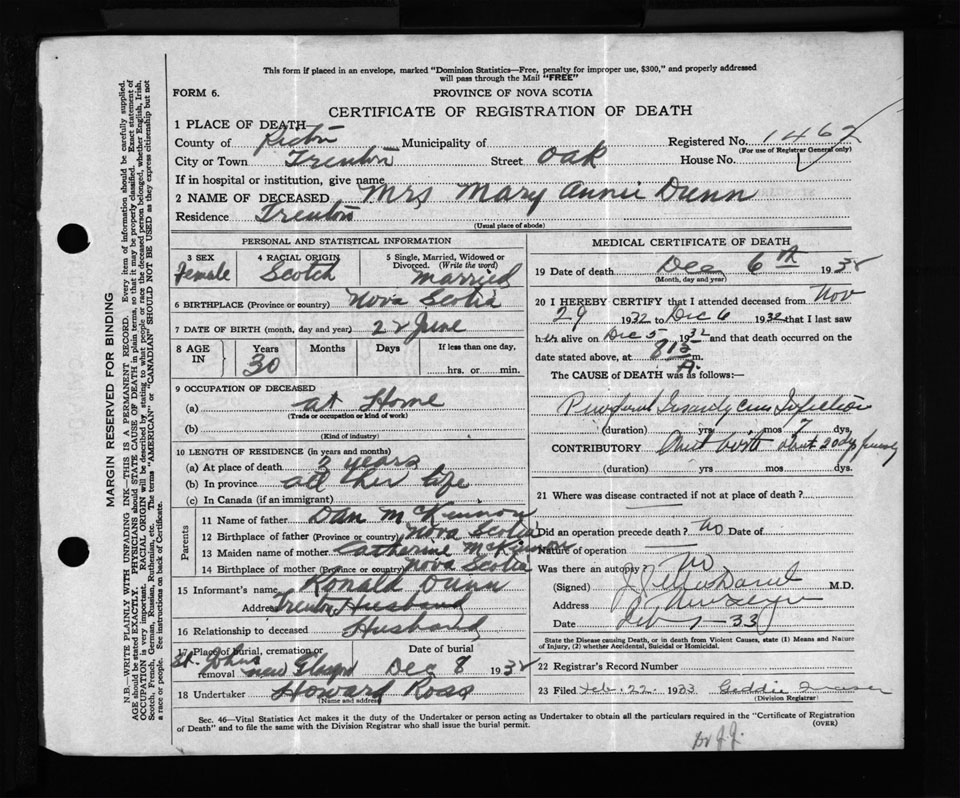 This form if placed in an envelope, marked "Dominion Statistics—Free, penalty for improper use, $300," and properly addressed
will pass through the Mail "FREE"
FORM 6.
PROVINCE OF NOVA SCOTIA
CERTIFICATE OF REGISTRATION OF DEATH
MARGIN RESERVED FOR BINDING
N.B.—WRITE PLAINLY WITH UNFADING INK—THIS IS A PERMANENT RECORD. Every item of information should be carefully supplied.
AGE should be stated EXACTLY. PHYSICIANS should STATE CAUSE OF DEATH in plain terms, so that it may be properly classified. Exact statement of
OCCUPATION is very important. RACIAL ORIGIN will be described by stating to what people or race the deceased person belonged, whether English, Irish,
Scotch, French, German, Russian, Ruthenian, etc. The terms "AMERICAN" or "CANADIAN" SHOULD NOT BE USED as they express citizenship but not
a race or people. See instructions on back of Certificate.
1 PLACE OF DEATH
County of Pictou Municipality of Registered No. 1462
(For use of Registrar General only)
City or Town Trenton Street Oak House No.
If in hospital or institution, give name
2 NAME OF DECEASED Mrs Mary Annie Dunn
Residence Trenton
(Usual place of abode)
PERSONAL AND STATISTICAL INFORMATION
3 SEX Female
4 RACIAL ORIGIN Scotch
5 Single, Married, Widowed or
Divorced. (Write the word)
married
6 BIRTHPLACE (Province or country) Nova Scotia
7 DATE OF BIRTH (month, day and year) 22 June
8 AGE IN Years 30 Months Days If less than one day,
hrs. or min.
9 OCCUPATION OF DECEASED
(a) at Home
(Trade or occupation or kind of work)
(b)
(Kind of industry)
10 LENGTH OF RESIDENCE (in years and months)
(a) At place of death 3 years
(b) In province all her life
(c) In Canada (if an immigrant)
Parents
11 Name of father Dan McKinnon
12 Birthplace of father (Province or country) Nova Scotia
13 Maiden name of mother Catherine McKinnon
14 Birthplace of mother (Province or country) Nova Scotia
15 Informant's name Ronald Dunn
Address Trenton Husband
16 Relationship to deceased Husband
17 Place of burial, cremation or removal Date of burial
St. Johns New Glasgow Dec 8 1932
18 Undertaker Howard Ross
(Name and address)
MEDICAL CERTIFICATE OF DEATH
19 Date of death Dec 6th 1932
(Month, day and year)
20 I HEREBY CERTIFY that I attended deceased from Nov
29 1932 to Dec 6 1932 that I last saw
h er alive on Dec 5 1932 and that death occurred on the
date stated above, at 815 A. m.
The CAUSE of DEATH was as follows:—
Infection
(duration) yrs mos 7 dys.
CONTRIBUTORY
(duration) yrs mos dys.
21 Where was disease contracted if not at place of death?
Did an operation precede death? No Date of
Nature of operation
Was there an autopsy? No
(Signed) M.D.
Address
Date 33
State the Disease causing Death, or in death from Violent Causes, state (1) Means and Nature
of Injury, (2) whether Accidental, Suicidal or Homicidal.
22 Registrar's Record Number
23 Filed Feb. 22. 1933
(Division Registrar)
Sec. 46—Vital Statistics Act makes it the duty of the Undertaker or person acting as Undertaker to obtain all the particulars required in the "Certificate of Registration
of Death" and to file the same with the Division Registrar who shall issue the burial permit.
(OVER)